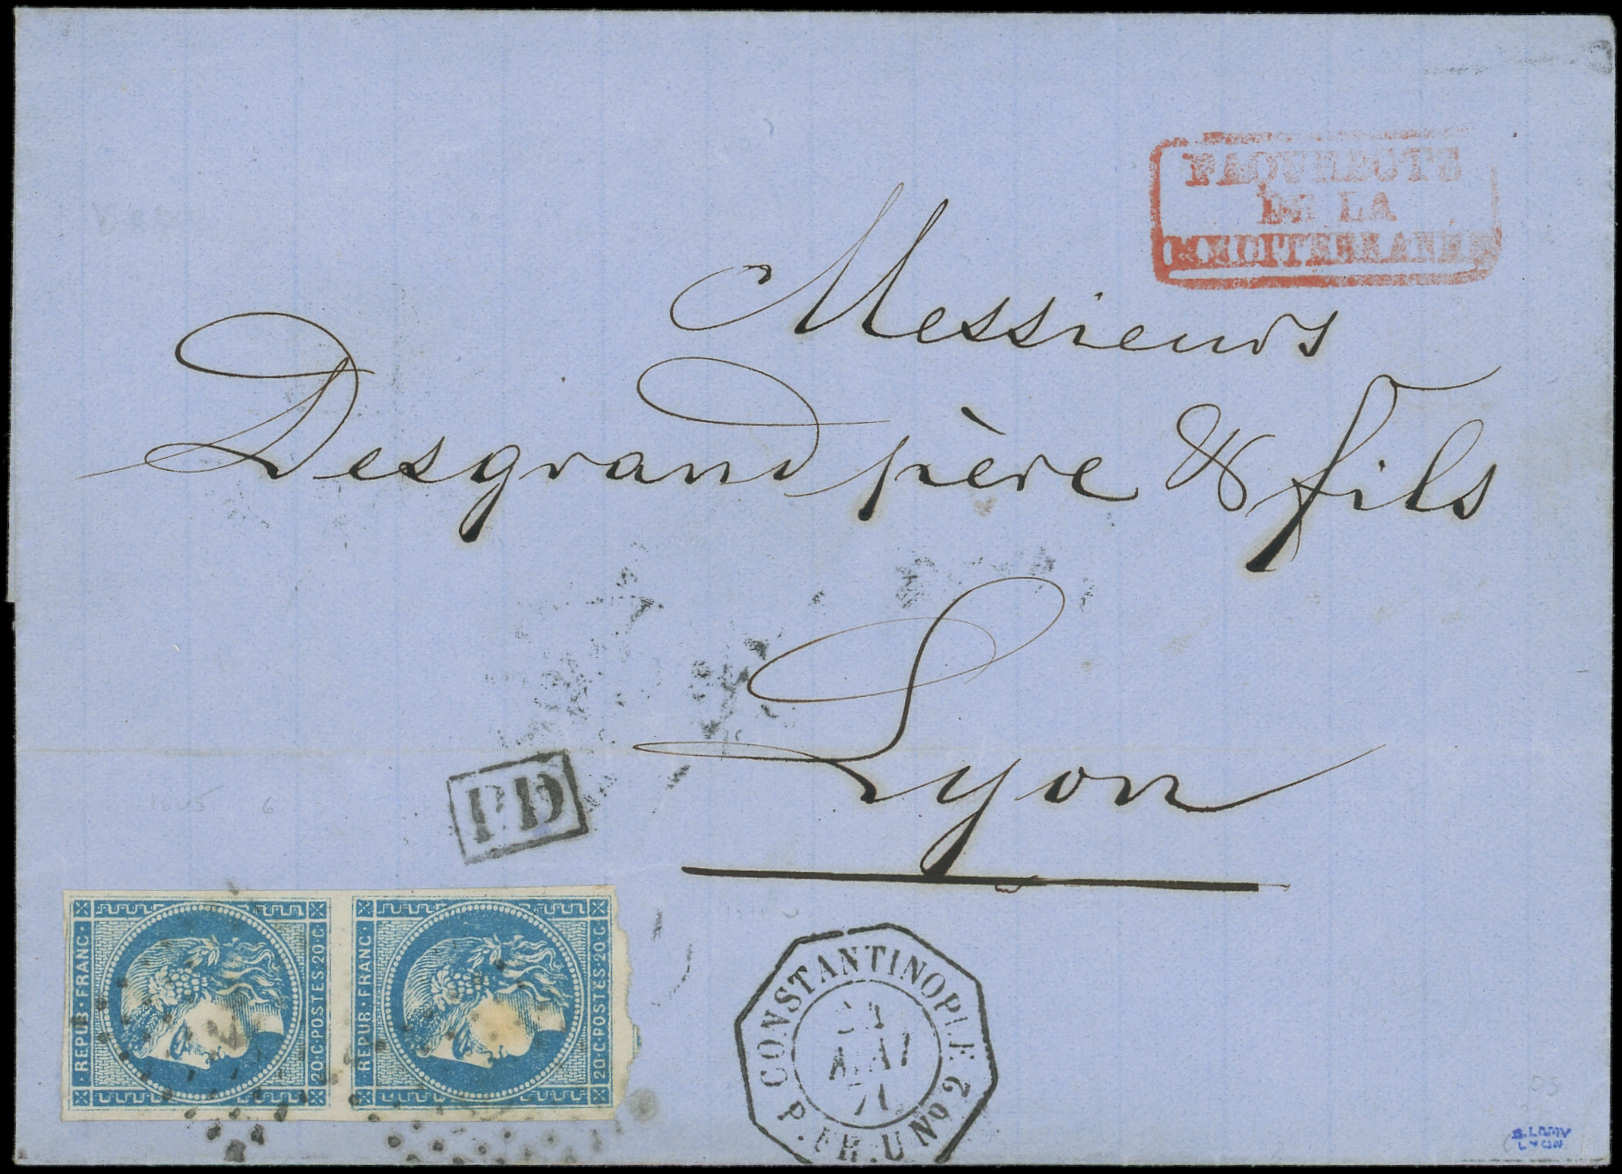 PAQUEBOTS
DE LA
MEDITERRANEE
Messieurs
Desgrand père & fils
Lyon
PD
REPUB·FRANC·
20·C·POSTES·20·C·
REPUB·FRANC·
20·C·POSTES·20·C·
CONSTANTINOPLE
MAI
71
P. FR. U Nº 2
LYON